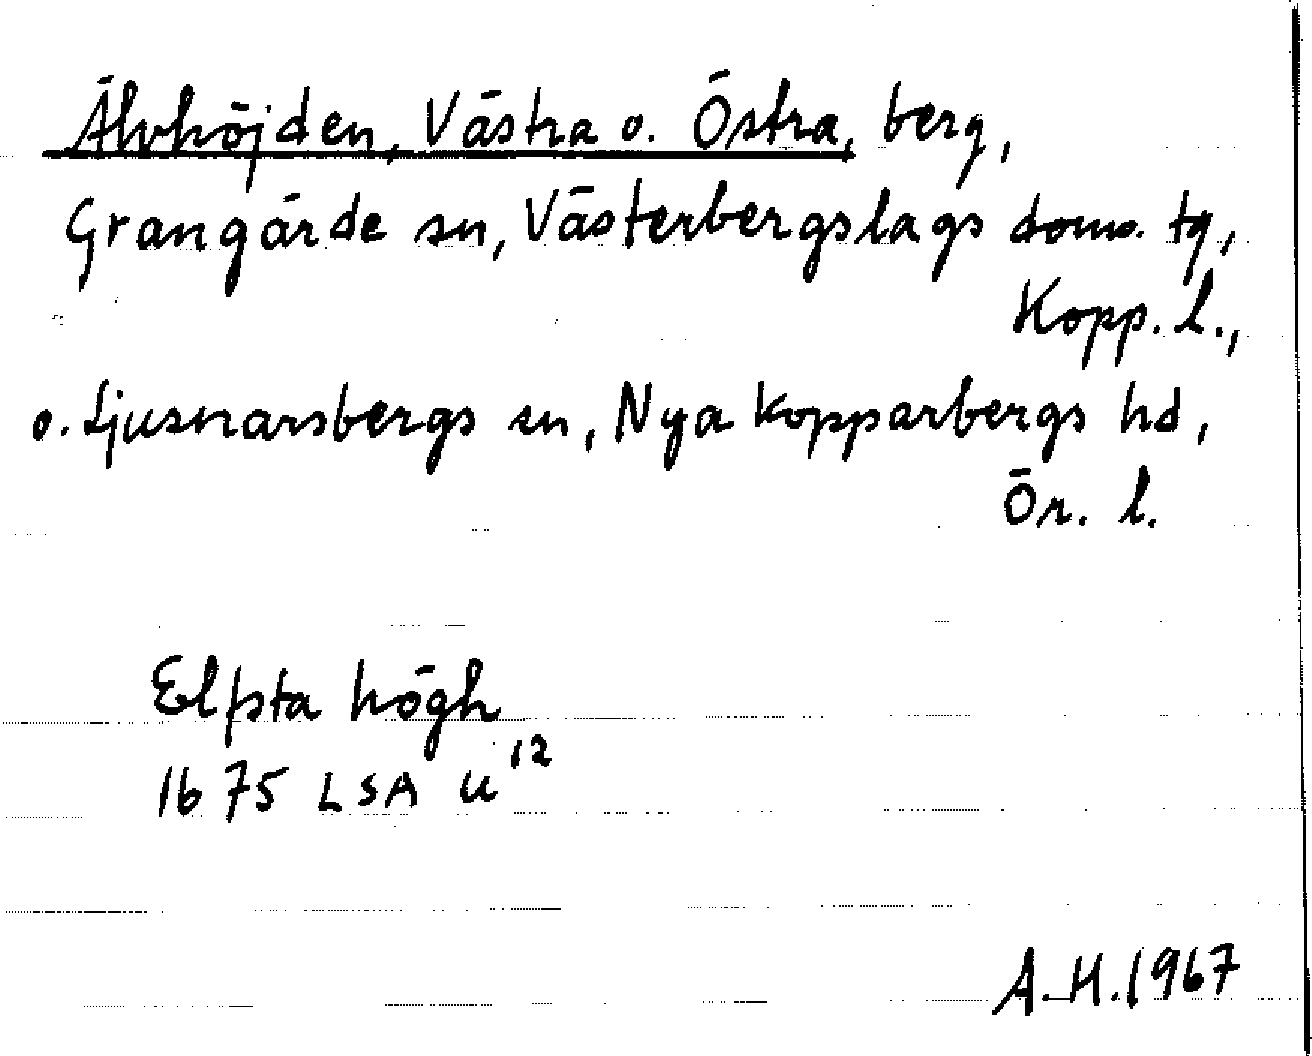 Älvhöjden, Västra o. Östra, berg,
Grangärde sn, Västerbergslags doms. tg,
Kopp. l.,
o. Ljusnarsbergs sn, Nya Kopparbergs hd,
Ör. l.
högh
1675 LSA U 12
A.H. 1967